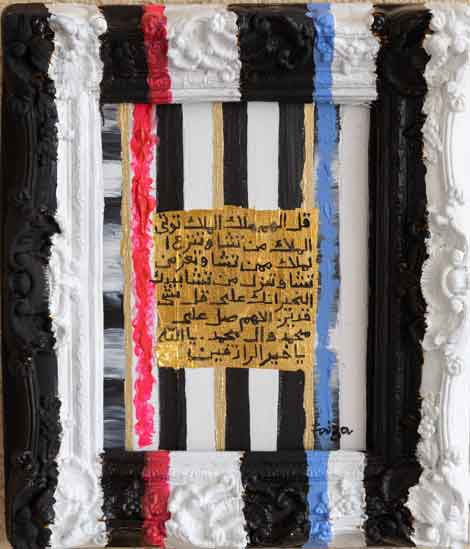 قل الهم ملك الملك توتي
الملك من تشا وتنزع ا
لملك ممن تشا وتعز من
تشا وتزل من تشا بيدك
الخير انك على كل شي
قدير الهم صل على
محمد وال محمد يا الله
يا خير الرازقين
Faiza